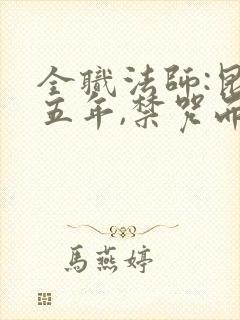 全職法師:昆
五年,禁咒兩
馬燕婷